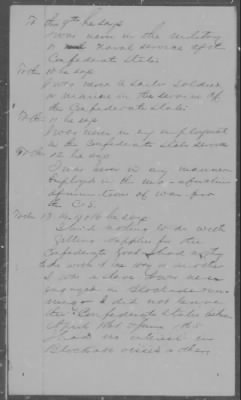 To the 9th he says
I was never in the military
or naval service of the
Confederate States
To the 10 he says
I was never a sailor soldier
or marine in the service of
the Confederate States
To the 11 he says
I was never in any employment
in the Confederate States service
To the 12 he says
I was never in any manner
employed in the
administration of war for
the C.S.
To the 13 14 15 & 16 he says
I had nothing to do with
getting supplies for the
Confederate Govt I had nothing
to do with it in any
I was never
engaged in Blockade
I did not leave
the Confederate States
April 1861 & June 1865
I had no interest in
Blockade